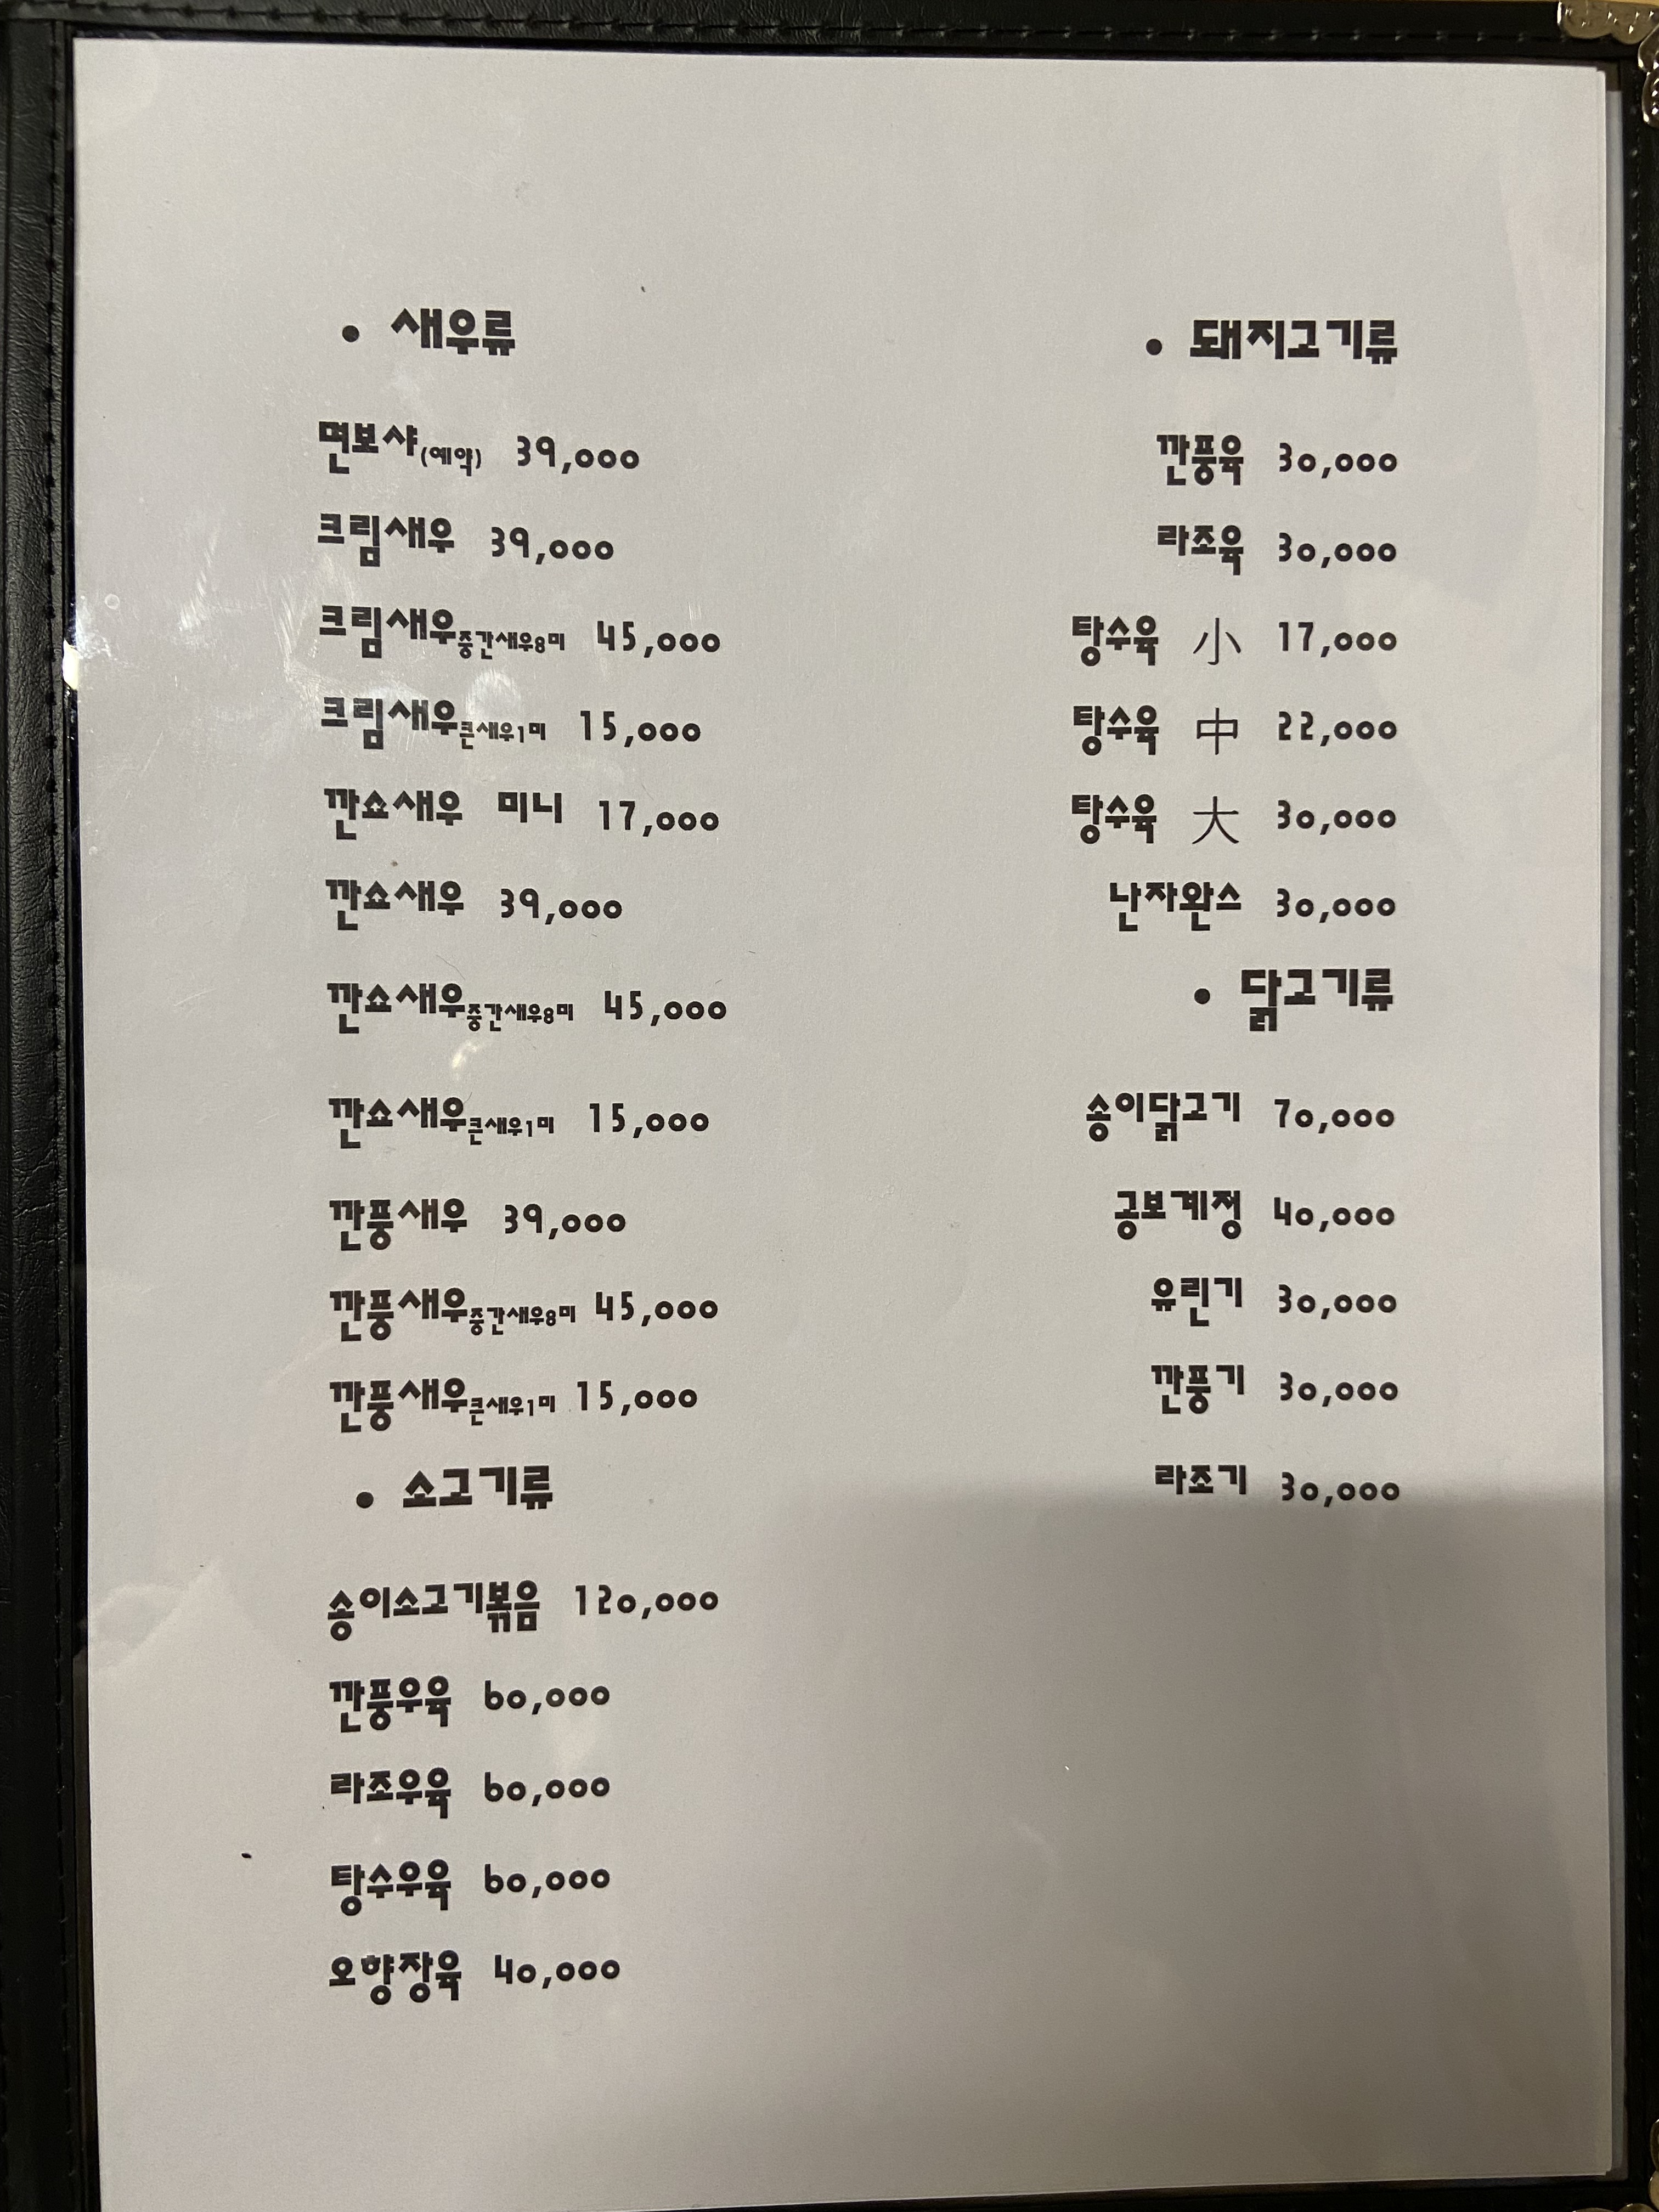 • 새우류
면보샤(예약) 39,000
크림새우 39,000
크림새우중간새우8미 45,000
크림새우큰새우1미 15,000
깐쇼새우 미니 17,000
깐쇼새우 39,000
깐쇼새우중간새우8미 45,000
깐쇼새우큰새우1미 15,000
깐풍새우 39,000
깐풍새우중간새우8미 45,000
깐풍새우큰새우1미 15,000
• 소고기류
송이소고기볶음 120,000
깐풍우육 60,000
라조우육 60,000
탕수우육 60,000
오향장육 40,000
• 돼지고기류
깐풍육 30,000
라조육 30,000
탕수육 小 17,000
탕수육 中 22,000
탕수육 大 30,000
난자완스 30,000
• 닭고기류
송이닭고기 70,000
공보계정 40,000
유린기 30,000
깐풍기 30,000
라조기 30,000